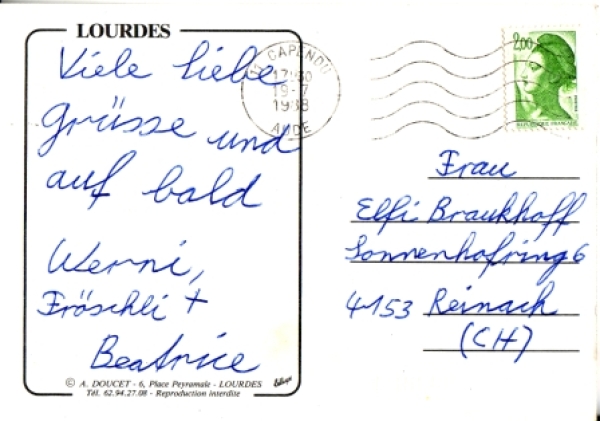 LOURDES
Viele liebe
Grüsse und
auf bald
Werni,
Fröschli +
Beatrice
© A. DOUCET - 6, Place Peyramale - LOURDES
Tél. 62.94.27.08 - Reproduction interdite
CAPENDU
17:30
19-7
1988
AUDE
2,00
REPUBLIQUE FRANÇAISE
Frau
Elfi Braukhoff
Sonnenhofring 6
4153 Reinach
(CH)